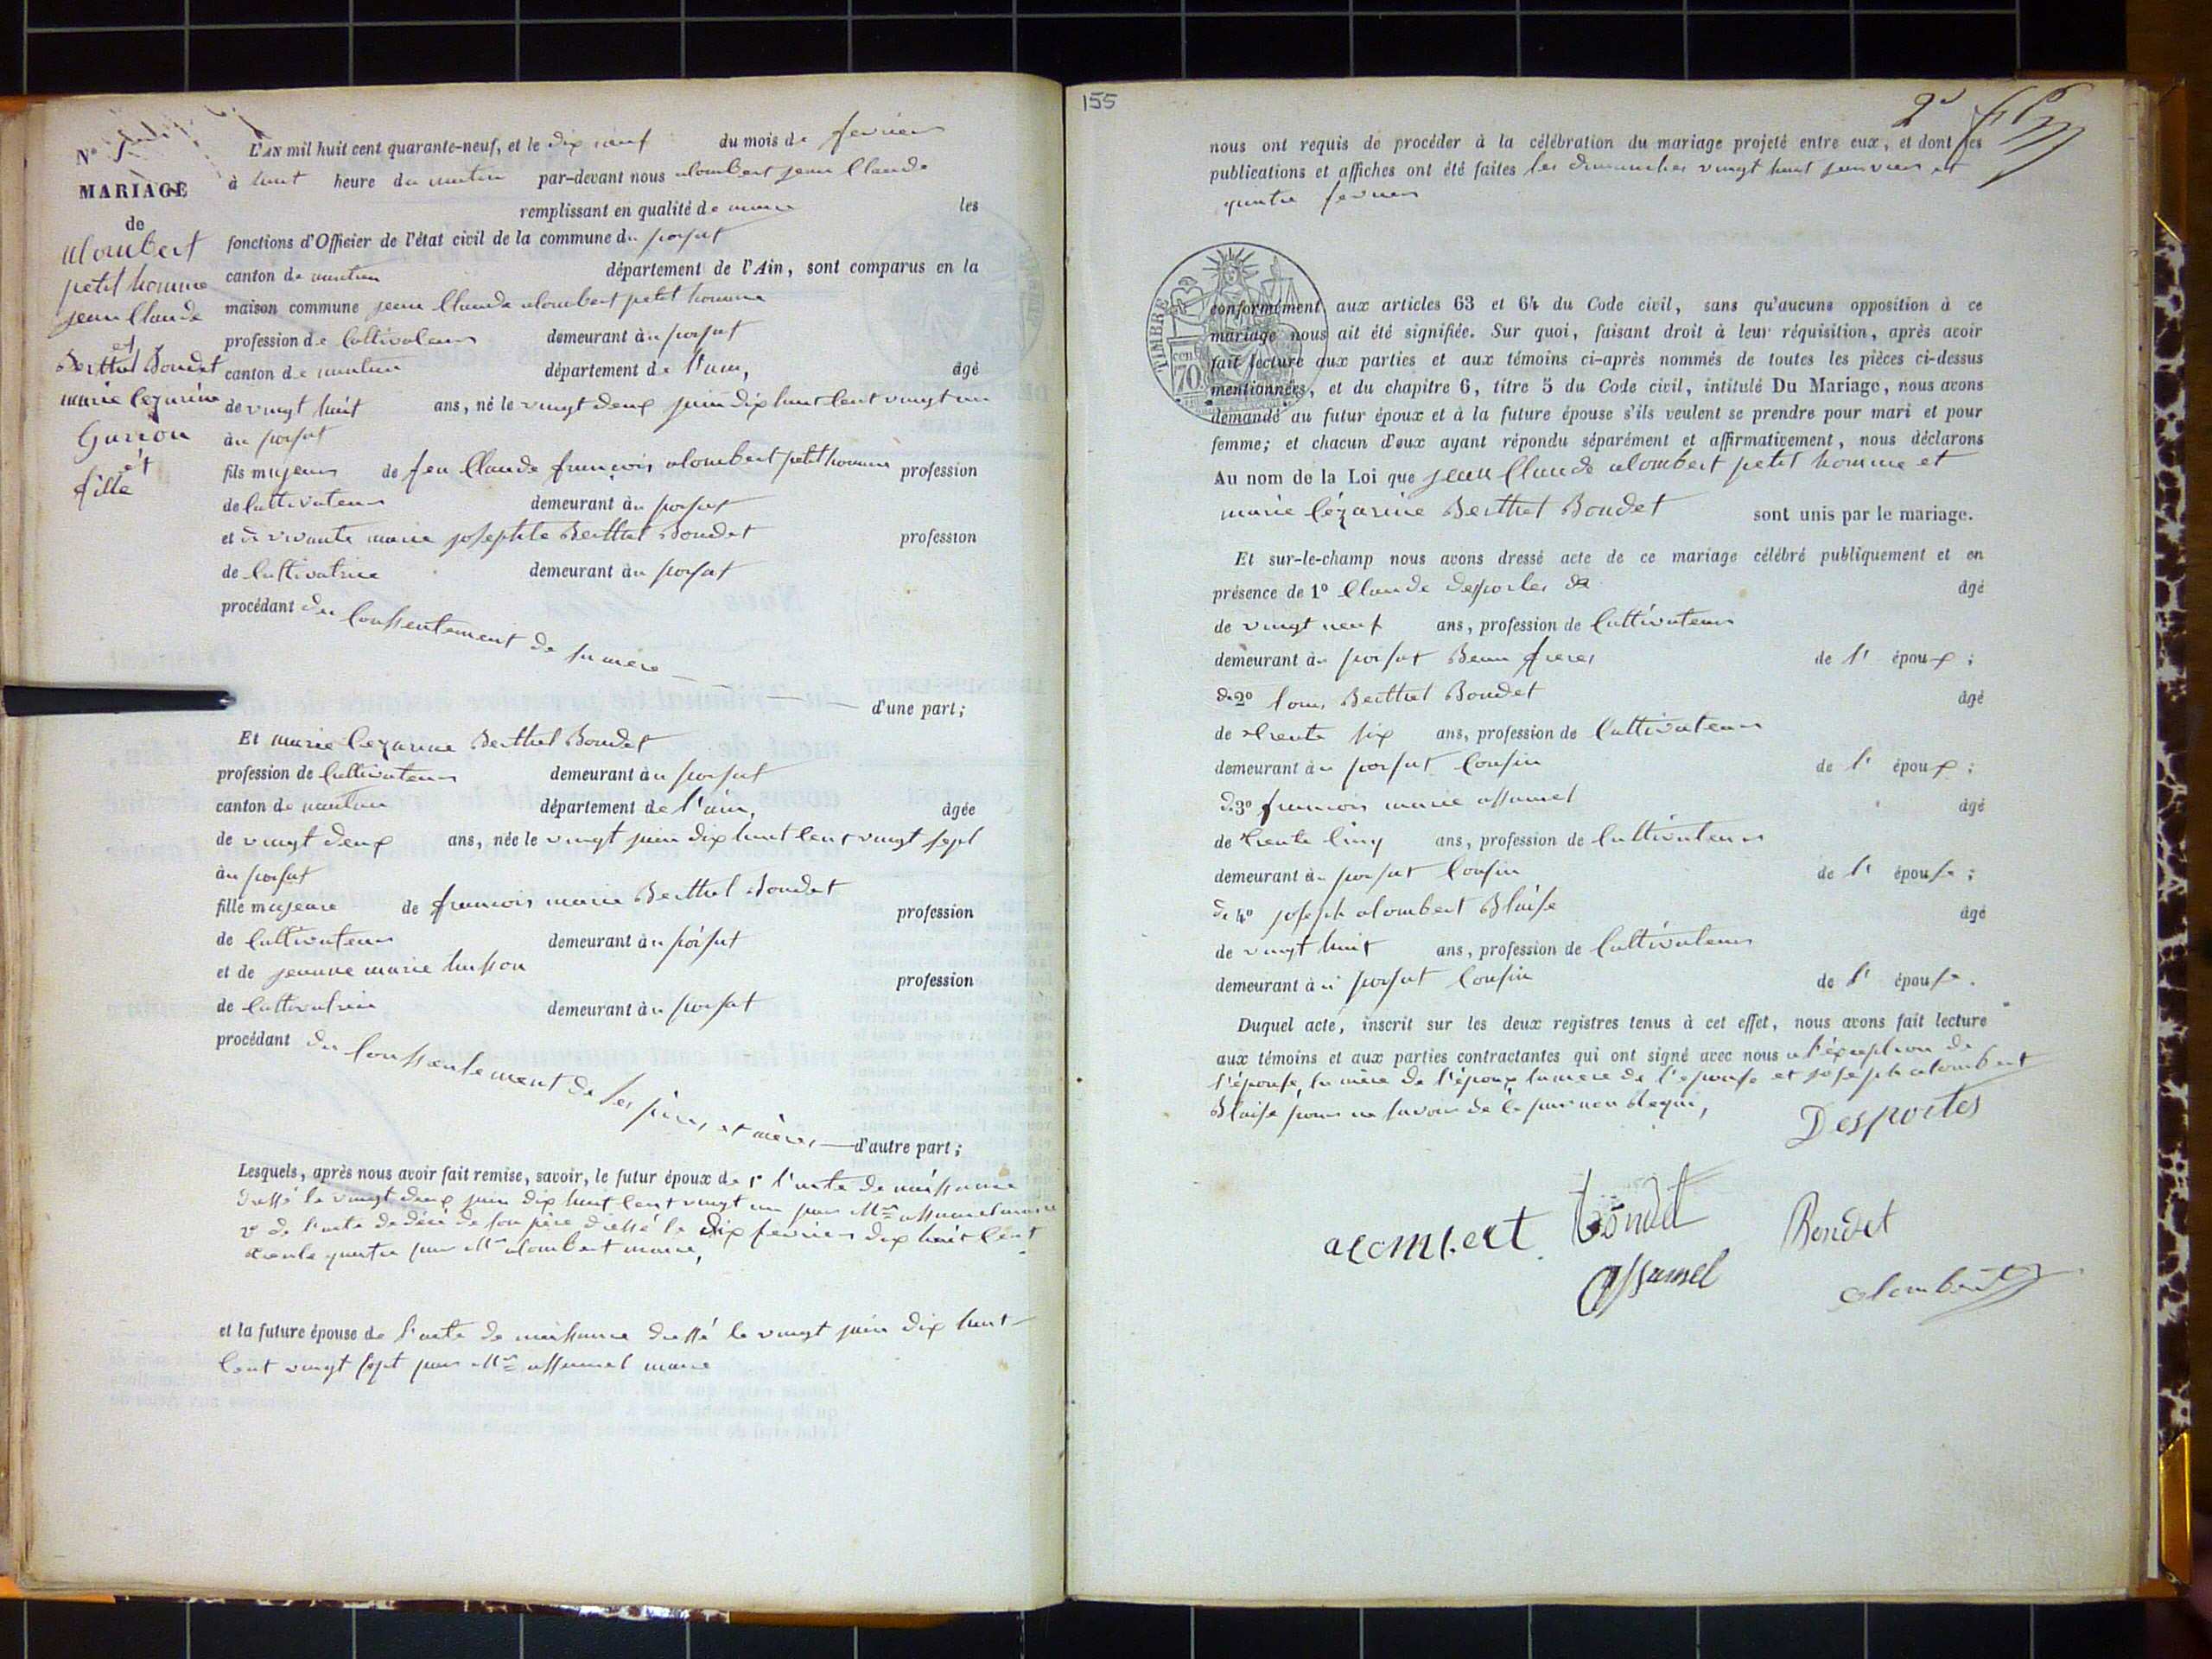 N° 1
MARIAGE
de
alombert
petit homme
jean Claude
et
Berthet Bondet
marie Cézarine
Garçon
et
fille
L'AN mil huit cent quarante-neuf, et le dix neuf du mois de fevrier
à huit heure du matin par-devant nous alombert jean Claude
remplissant en qualité de maire les
fonctions d'Officier de l'état civil de la commune du poisat
canton de nantua département de l'Ain, sont comparus en la
maison commune jean Claude alombert petit homme
profession de Cultivateur demeurant au poisat
canton de nantua département de l'ain, âgé
de vingt huit ans, né le vingt deux juin dix huit Cent vingt un
au poisat
fils majeur de feu Claude françois alombert petit homme profession
de Cultivateur demeurant au poisat
et de vivante marie josephte Berthet Bondet profession
de Cultivatrice demeurant au poisat
procédant du Conssentement de sa mère
d'une part;
Et marie Cezarine Berthet Bondet
profession de Cultivateur demeurant au poisat
canton de nantua département de l'ain, âgée
de vingt deux ans, née le vingt juin dix huit Cent vingt sept
au poisat
fille majeure de francois marie Berthet Bondet profession
de Cultivateur demeurant au poisat
et de jeanne marie husson profession
de Cultivatrice demeurant au poisat
procédant du Conssentement de ses pères et mères
d'autre part;
Lesquels, après nous avoir fait remise, savoir, le futur époux de 1° l'acte de naissance
dressé le vingt deux juin dix huit Cent vingt un par Mr assumel maire
2° de l'acte de décé de son père dressé le dix fevrier dix huit Cent
trente quatre par Mr alombert maire,
et la future épouse de l'acte de naissance dressé le vingt juin dix huit
Cent vingt sept par Mr assumel maire
155
2e
nous ont requis de procéder à la célébration du mariage projeté entre eux, et dont les
publications et affiches ont été faites les dimanches vingt huit janvier et
quatre fevrier
TIMBRE
cen
70
conformément aux articles 63 et 64 du Code civil, sans qu'aucune opposition à ce
mariage nous ait été signifiée. Sur quoi, faisant droit à leur réquisition, après avoir
fait lecture aux parties et aux témoins ci-après nommés de toutes les pièces ci-dessus
mentionnées, et du chapitre 6, titre 5 du Code civil, intitulé Du Mariage, nous avons
demandé au futur époux et à la future épouse s'ils veulent se prendre pour mari et pour
femme; et chacun d'eux ayant répondu séparément et affirmativement, nous déclarons
Au nom de la Loi que jean Claude alombert petit homme et
marie Cézarine Berthet Bondet sont unis par le mariage.
Et sur-le-champ nous avons dressé acte de ce mariage célébré publiquement et en
présence de 1° Claude Desportes âgé
de vingt neuf ans, profession de Cultivateur
demeurant au poisat Beau frere de l' époux;
de 2° louis Berthet Bondet âgé
de trente six ans, profession de Cultivateur
demeurant au poisat Cousin de l' époux;
de 3° francois marie assumel âgé
de trente Cinq ans, profession de Cultivateur
demeurant au poisat Cousin de l' épouse;
de 4° joseph alombert Blaise âgé
de vingt huit ans, profession de Cultivateur
demeurant au poisat Cousin de l' épouse.
Duquel acte, inscrit sur les deux registres tenus à cet effet, nous avons fait lecture
aux témoins et aux parties contractantes qui ont signé avec nous a l'éxception de
l'épouse la mère de l'époux la mere de l'epouse et joseph alombert
Blaise pour ne savoir de ce par nou Requi,
Desportes
alombert Bondet Bondet
assumel alombert